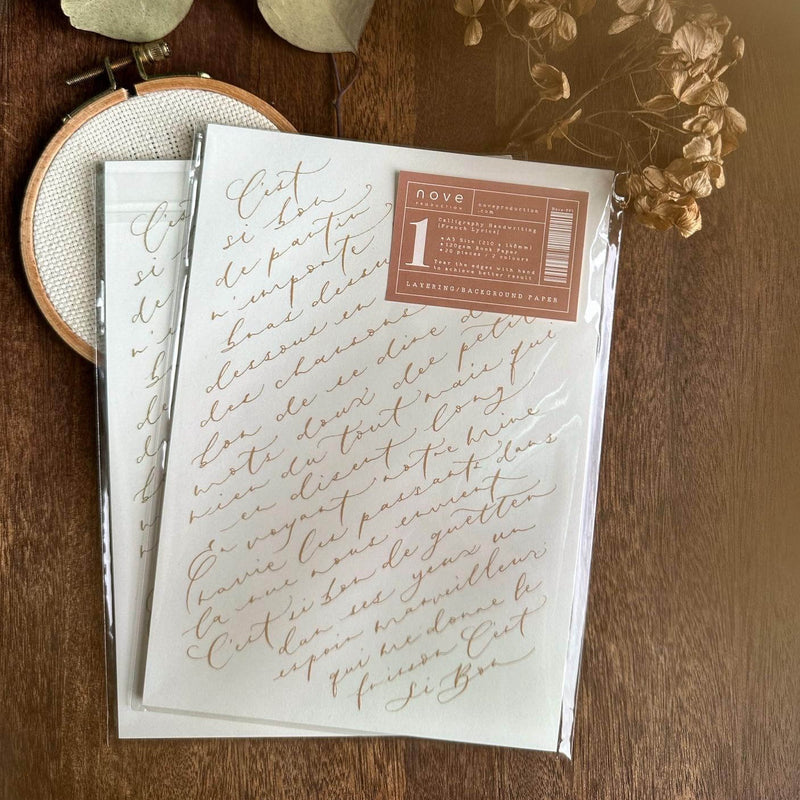 C'est
si bon
de partir
n'importe
bras dessus
dessous en
des chansons
bon de se dire d
mots doux des petit
rien du tout mais qui
en disent long
En voyant notre mine
ravie les passants dans
la rue nous envient
C'est si bon de guetter
dans ses yeux un
espoir merveilleux
qui me donne le
frisson C'est
Si Bon
nove
PRODUCTION
noveproduction
.com
1
Calligraphy Handwriting
(French Lyrics)
A5 Size (210 x 148mm)
120gsm Book Paper
20 pieces / 2 colours
Tear the edges with hand
to achieve better result
LAYERING/BACKGROUND PAPER
C'es
si
de
n'i